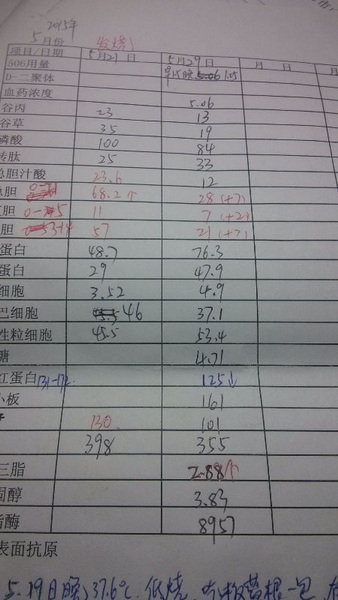 2015年
5月份 发烧
项目/日期 5月21日 5月29日 月 日
506用量
D-二聚体
血药浓度 5.06
谷丙 23 13
谷草 35 19
磷酸 100 84
转肽 25 33
总胆汁酸 23.6 12
总胆 68.2↑ 28 (+7)
胆 0-5 11 7 (+2)
胆 57 21 (+7)
蛋白 48.7 76.3
蛋白 29 47.9
细胞 3.52 4.9
巴细胞 46 37.1
性粒细胞 45.5 53.4
糖 4.71
红蛋白 131-172 125↓
小板 161
130 101
398 355
三脂 2.88↑
固醇 3.83
酯酶 8957
表面抗原
5.19日晚 37.6℃ 低烧